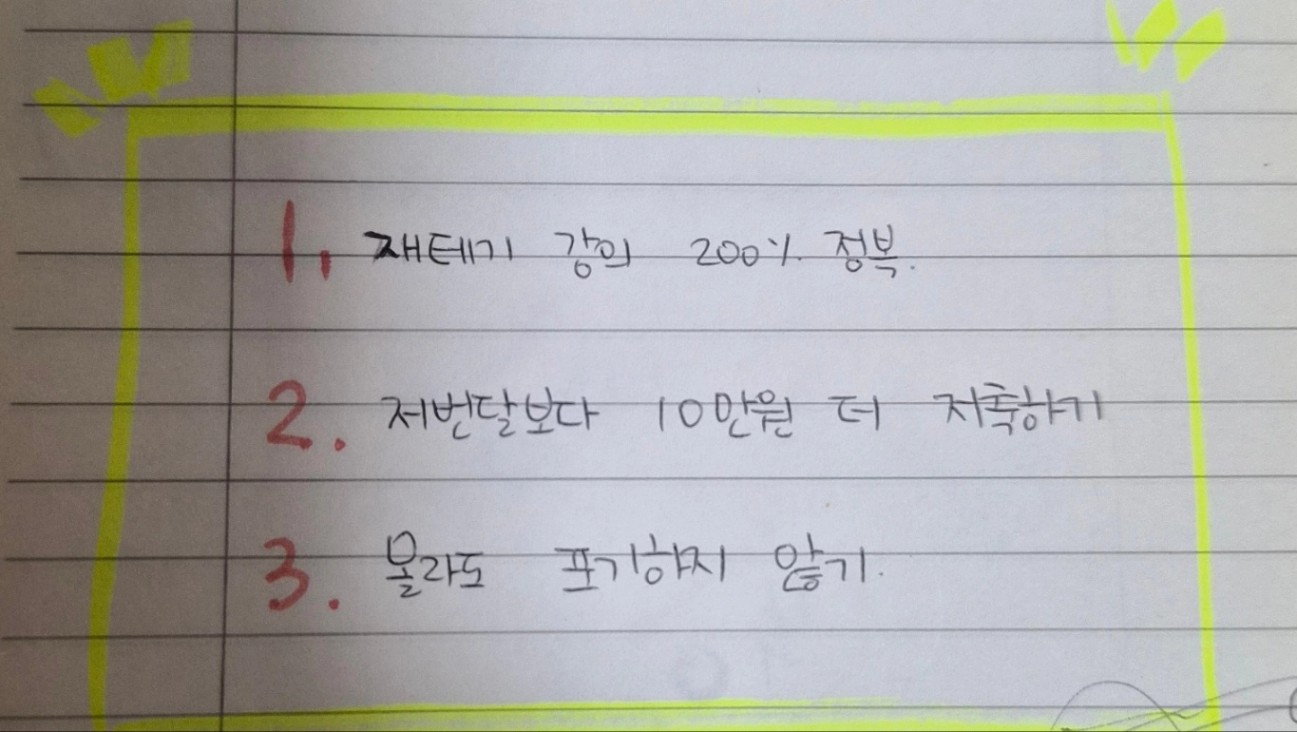 1. 재테기 강의 200% 정복.
2. 저번달보다 10만원 더 저축하기
3. 몰라도 포기하지 않기.